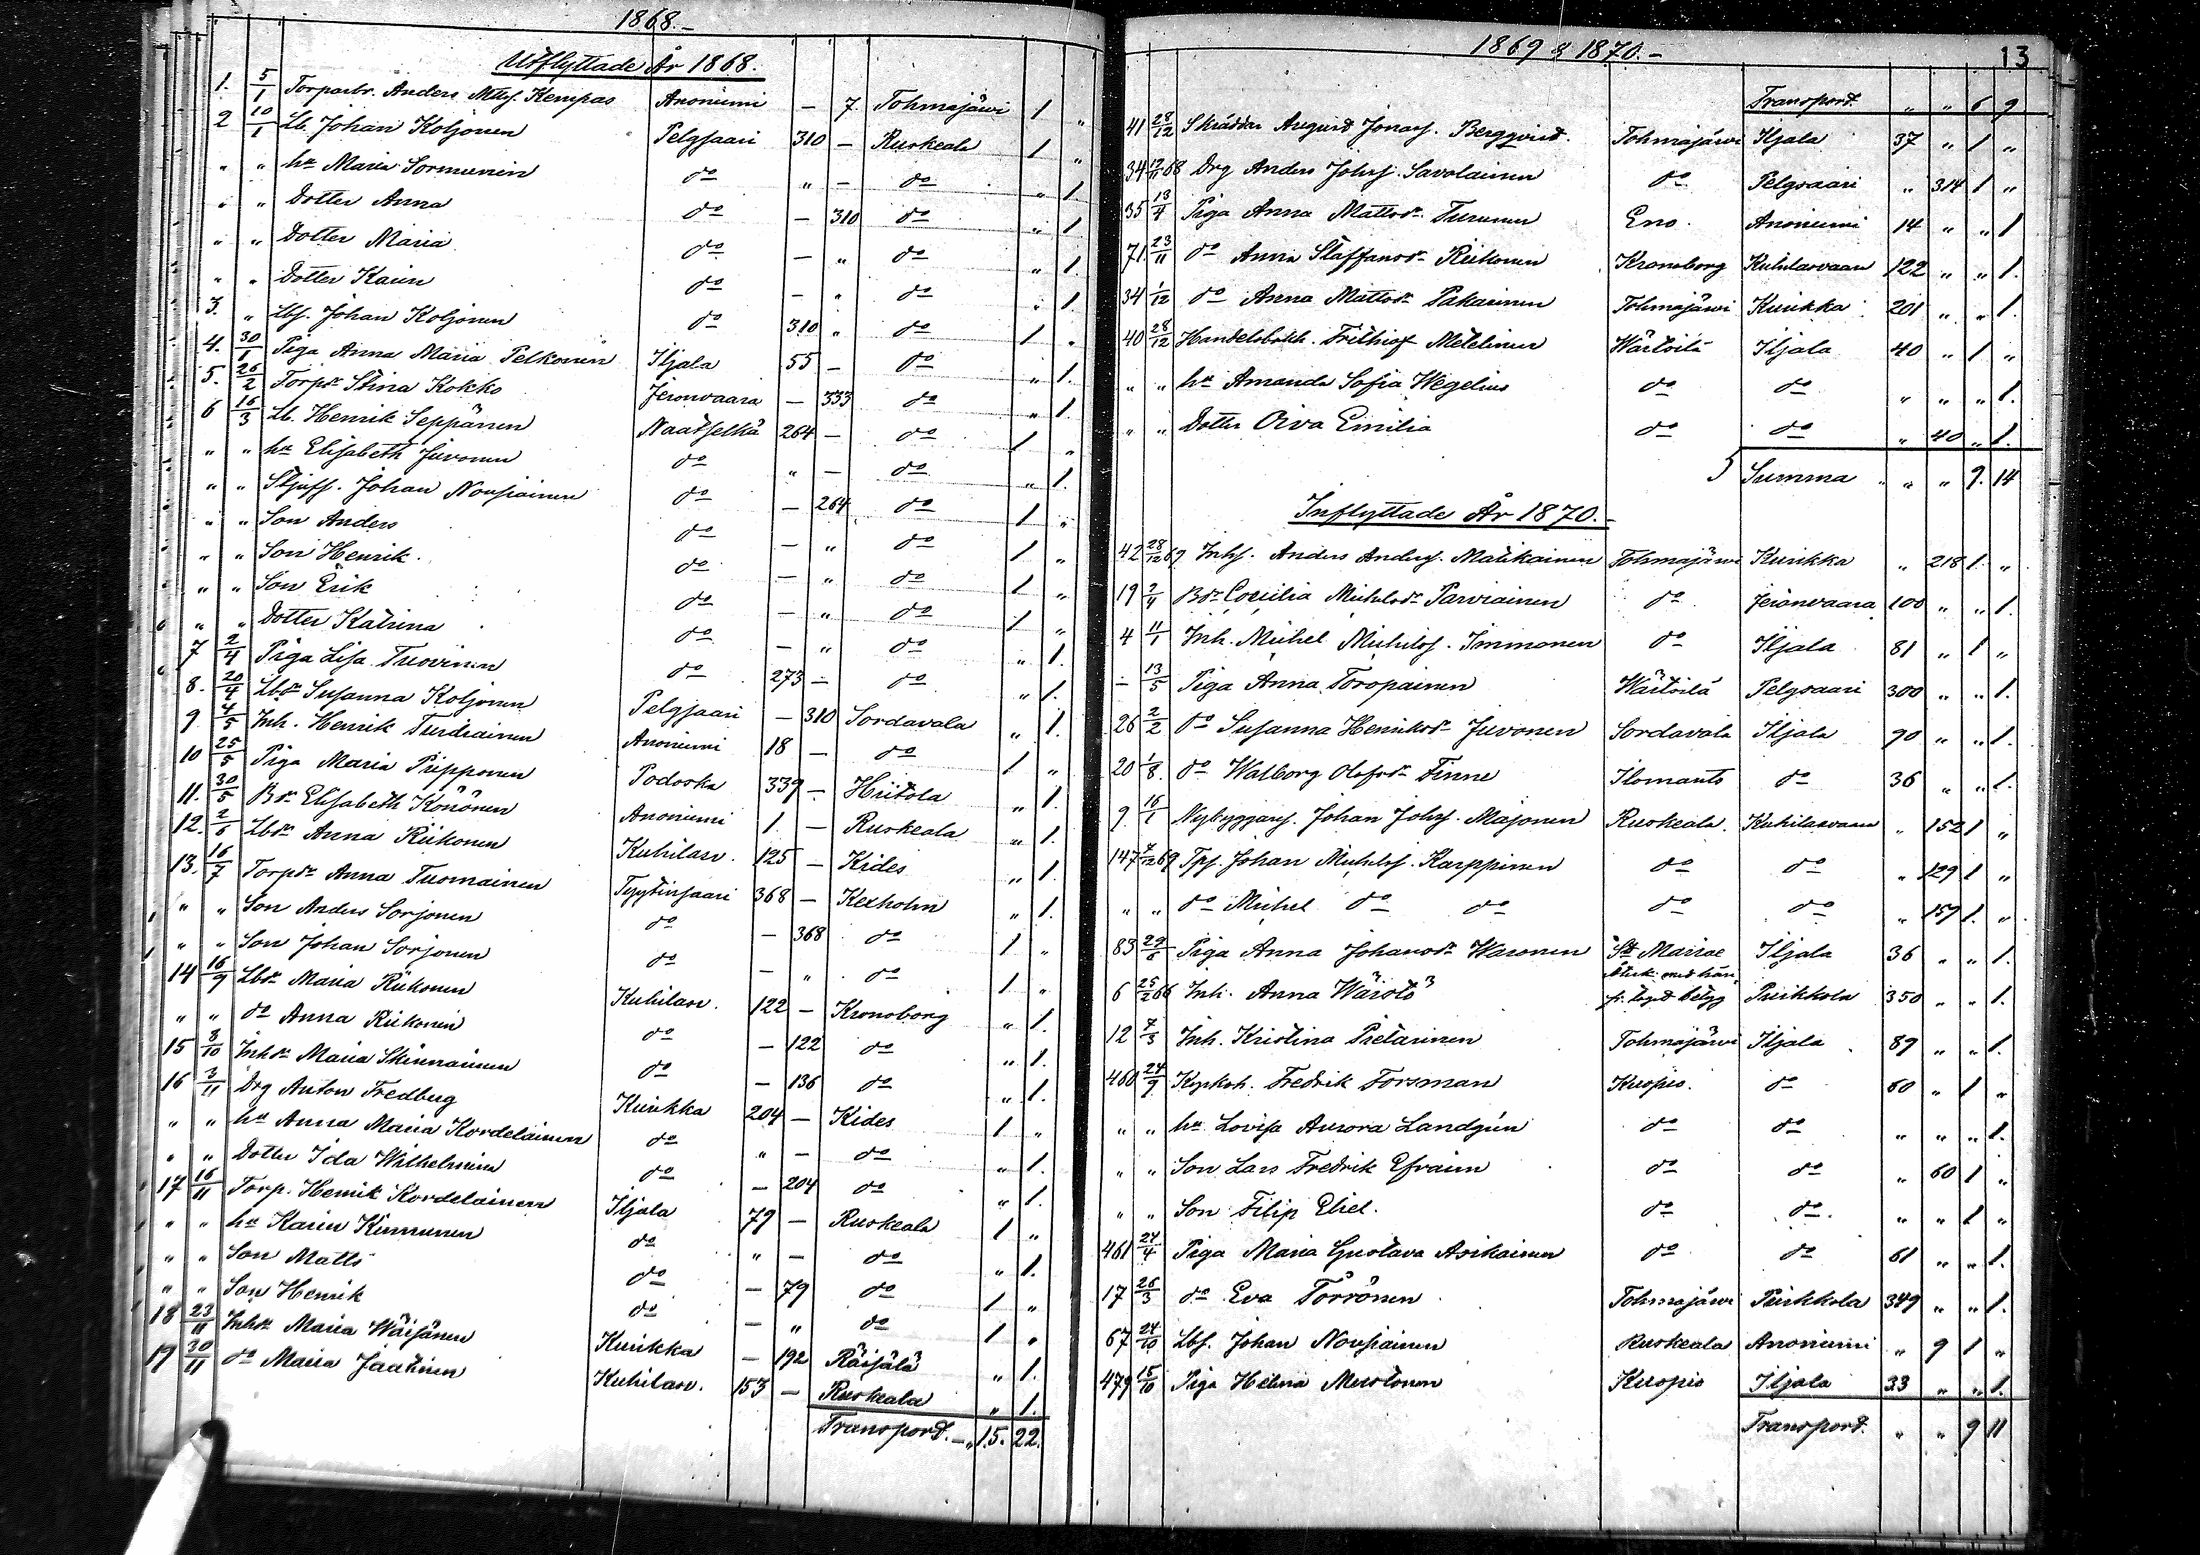 1868.-
Utflyttade År 1868.
1. 5/1 Torparbr. Anders Mtts. Kempas Anoniemi — 7 Tohmajärvi 1 „
2 10/1 Lb. Johan Koljonen Pelgjaari 310 — Ruskeala 1 „
„ „ hu Maria Sormunen do „ — do „ 1
„ „ Dotter Anna do — 310 do „ 1
„ „ Dotter Maria do — „ do „ 1
„ „ Dotter Karin do — „ do „ 1.
3. „ Lbs. Johan Koljonen do 310 „ do 1 „
4. 30/1 Piga Anna Maria Pelkonen Iljala 55 — do „ 1.
5. 26/2 Torpdr Stina Kokko Jeronvaara — 333 do „ 1.
6 16/3 Lb. Henrik Seppänen Naatselkä 264 — do 1 „
„ „ hu Elisabeth Juvonen do „ — do „ 1.
„ „ Stjufs. Johan Nousiainen do — 264 do 1 „
„ „ Son Anders do — „ do 1 „
„ „ Son Henrik. do — „ do 1 „
„ „ Son Erik do — „ do 1 „
„ „ Dotter Katrina do — „ do „ 1.
7 2/4 Piga Lisa Tuovinen do 273 — do „ 1.
8. 20/4 Lbdr Susanna Koljonen Pelgjaari — 310 Sordavala „ 1.
9. 4/5 Inh. Henrik Turdiainen Anoniemi 18 — do 1 „
10 25/5 Piga Maria Piipponen Podoska 339 — Hiitola „ 1.
11. 30/5 Bdr Elisabeth Könönen Anoniemi 1 — Ruskeala „ 1.
12. 2/6 Lbdr Anna Riikonen Kuhilasv. 125 — Kides „ 1.
13. 16/7 Torpdr Anna Tuomainen Tyytinsaari 368 — Kexholm „ 1.
„ „ Son Anders Sorjonen do — 368 do 1 „
„ „ Son Johan Sorjonen do — „ do 1 „
14 16/9 Lbdr Maria Riikonen Kuhilasv. 122 — Kronoborg „ 1.
„ „ do Anna Riikonen do — 122 do „ 1.
15 8/10 Inhdr Maria Skinnainen do — 136 do „ 1.
16 3/11 Drg Anton Fredberg Kurikka 204 — Kides 1 „
„ „ hu Anna Maria Kordelainen do „ — do „ 1.
„ „ Dotter Ida Wilhelmina do — 204 do „ 1.
17 16/11 Torp. Henrik Kordelainen Iljala 79 — Ruskeala 1 „
„ „ hu Karin Kinnunen do „ — do „ 1.
„ „ Son Matts do — 79 do 1 „
„ „ Son Henrik do — „ do 1 „
18 23/11 Inhdr Maria Wäisänen Kurikka — 192 Räisälä „ 1.
19 30/11 do Maria Jaatinen Kuhilasv. 153 — Ruskeala „ 1.
Transport. — „ 15. 22.
1869 & 1870.-
13
Transport „ „ 6 9
41 28/12 Skräddar August Jonass. Bergqvist Tohmajärvi Iljala 37 „ 1 „
34 12/11 68 Drg Anders Johss. Savolainen do Pelgsaari „ 314 1 „
35 13/4 Piga Anna Mattsdr Turunen Eno. Anoniemi 14 „ „ 1
71 23/11 do Anna Staffansdr Riikonen Kronoborg Kuhilasvaara 122 „ „ 1.
34 1/12 do Anna Mattsdr Pakarinen Tohmajärvi Kurikka 201 „ „ 1.
40 28/12 Handelsbokh. Frithiof Metelinen Wärtsilä Iljala 40 „ 1 „
„ „ hu Amanda Sofia Wegelius do do „ „ „ 1.
„ „ Dotter Oiva Emilia do do „ 40 „ 1.
Summa „ „ 9. 14
Inflyttade År 1870.-
42 28/12 69 Inhs. Anders Anders. Matikainen Tohmajärvi Kurikka „ 218 1. „
19 2/4 Bdr Cecilia Michelsdr Parviainen do Jeronvaara 100 „ „ 1.
4 11/1 Inh. Michel Michelss. Immonen do Iljala 81 „ 1 „
- 13/5 Piga Anna Toropainen Wärtsilä Pelgsaari 300 „ „ 1.
26 2/2 do Susanna Henriksdr Juvonen Sordavala Iljala 90 „ „ 1.
20 1/8 do Walborg Olofsdr Tinne Ilomants do 36 „ „ 1.
9 16/1 Nybyggars. Johan Johss. Majonen Ruskeala. Kuhilasvaara „ 152 1 „
147 7/12 69 Tps. Johan Michelss. Karppinen do do „ 129 1 „
„ „ do Michel do do do do „ 159 1. „
83 29/6 Piga Anna Johansdr Waronen St Mariae Iljala 36 „ „ 1.
6 25/2 66 Inh. Anna Wäistö betyg Puikkola 350 „ „ 1.
12 7/3 Inh. Kristina Pietarinen Tohmajärvi Iljala 89 „ „ 1.
460 24/9 Kypksh. Fredrik Forsman Kuopio. do 60 „ 1 „
„ „ hu Lovisa Aurora Landgrén do do „ „ „ 1.
„ „ Son Lars Fredrik Efraim do do „ 60 1 „
„ „ Son Filip Eliel. do do. „ „ 1 „
461 24/4 Piga Maria Gustava Asikainen do do 61 „ „ 1.
17 26/3 do Eva Törrönen Tohmajärvi Puikkola 349 „ „ 1.
67 24/10 Lbs. Johan Nousiainen Ruskeala Anoniemi „ 9 1 „
479 15/10 Piga Helena Mustonen Kuopio Iljala 33 „ „ 1.
Transport. „ „ 9 11